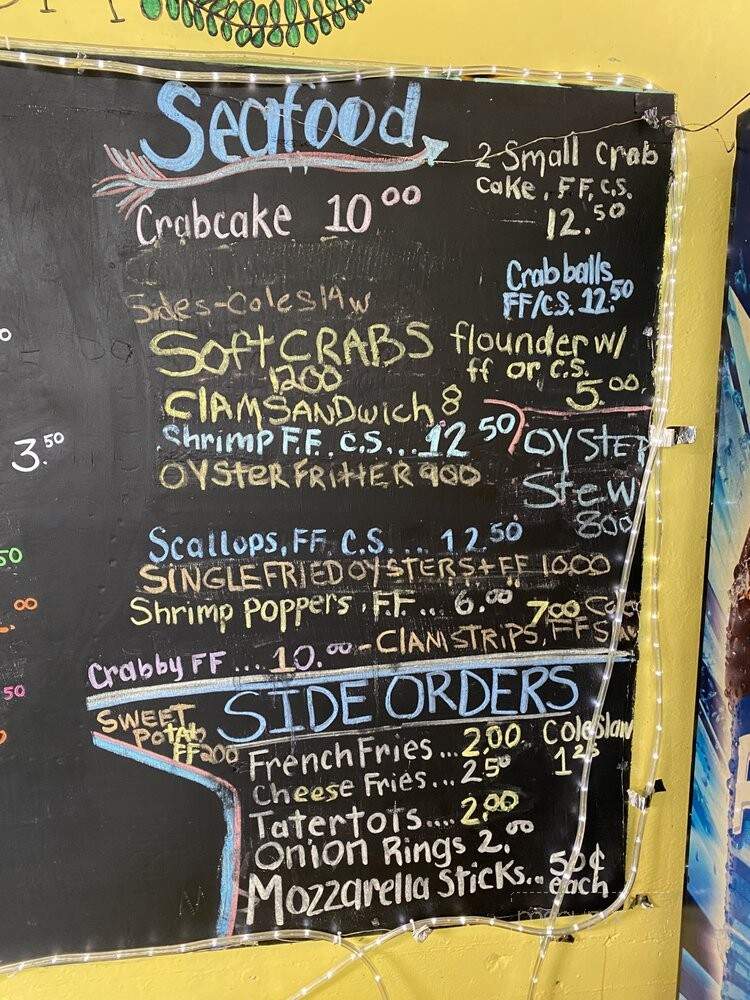 Seafood
2 Small Crab
Cake, FF, C.S.
12.50
Crabcake 10.00
Crab balls
FF/CS. 12.50
Sides-Coleslaw
Soft CRABS
1200
flounder w/
ff or c.s.
5.00
CLAM SANDwich 8
Shrimp F.F. C.S... 12 50
OYSTER FRITTER 900
OYSTER
Stew
800
Scallops, FF. C.S. ... 12.50
SINGLE FRIED OYSTERS + FF 1000
Shrimp Poppers, F.F... 6.00
7.00
Crabby FF .... 10.00 - CLAM STRIPS, FF
SIDE ORDERS
SWEET
PotAto
FF 200
French Fries ... 2.00
Cheese Fries ... 2.50
ColeSlaw
1 25
Tatertots .... 2.00
Onion Rings 2.00
Mozzarella Sticks... 50¢
each
3.50
50
.00
50